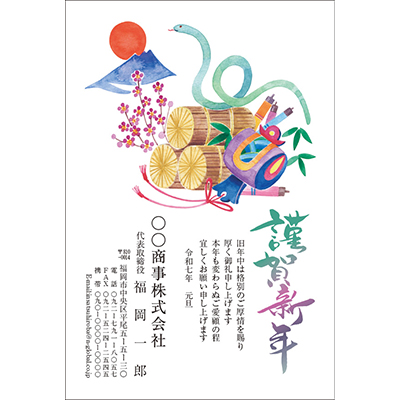 謹賀新年
旧年中は格別のご厚情を賜り
厚く御礼申し上げます
本年も変わらぬご愛顧の程
宜しくお願い申し上げます
令和七年 元旦
〇〇商事株式会社
代表取締役 福岡一郎
〒810-0014
福岡市中央区平尾五-五-三〇
電話 〇九二-七九一-八〇五七
FAX 〇九二-五二四-二五四五
携帯 〇九〇-〇〇〇〇-〇〇〇〇